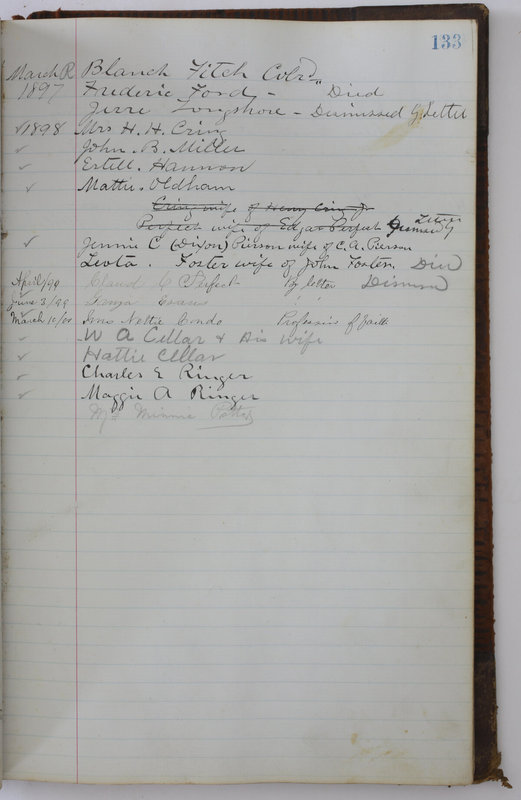 133
March R Blanch Fitch Colrd
1897 Frederic Ford - " Died
Jerre Longshore - Dismissed By Letter
✓1898 Mrs H. H. Cring
✓ John. B. Miller
✓ Estell. Hannon
✓ Mattie. Oldham
Cring wife of Henry Cring Jr
Perfect wife of Edgar Perfect Letter
✓ Jennie C (Dixon) Pierson wife of C. A. Pierson
Leota. Foster wife of John Foster. Died
April/99 Claud C Perfect By letter Dismissed
June 3/99
March 10/01 Mrs Nettie Condo Profession of faith
✓ W A Cellar & His wife
✓ Hattie Cellar
✓ Charles E Ringer
✓ Maggie A Ringer
Mrs Minnie